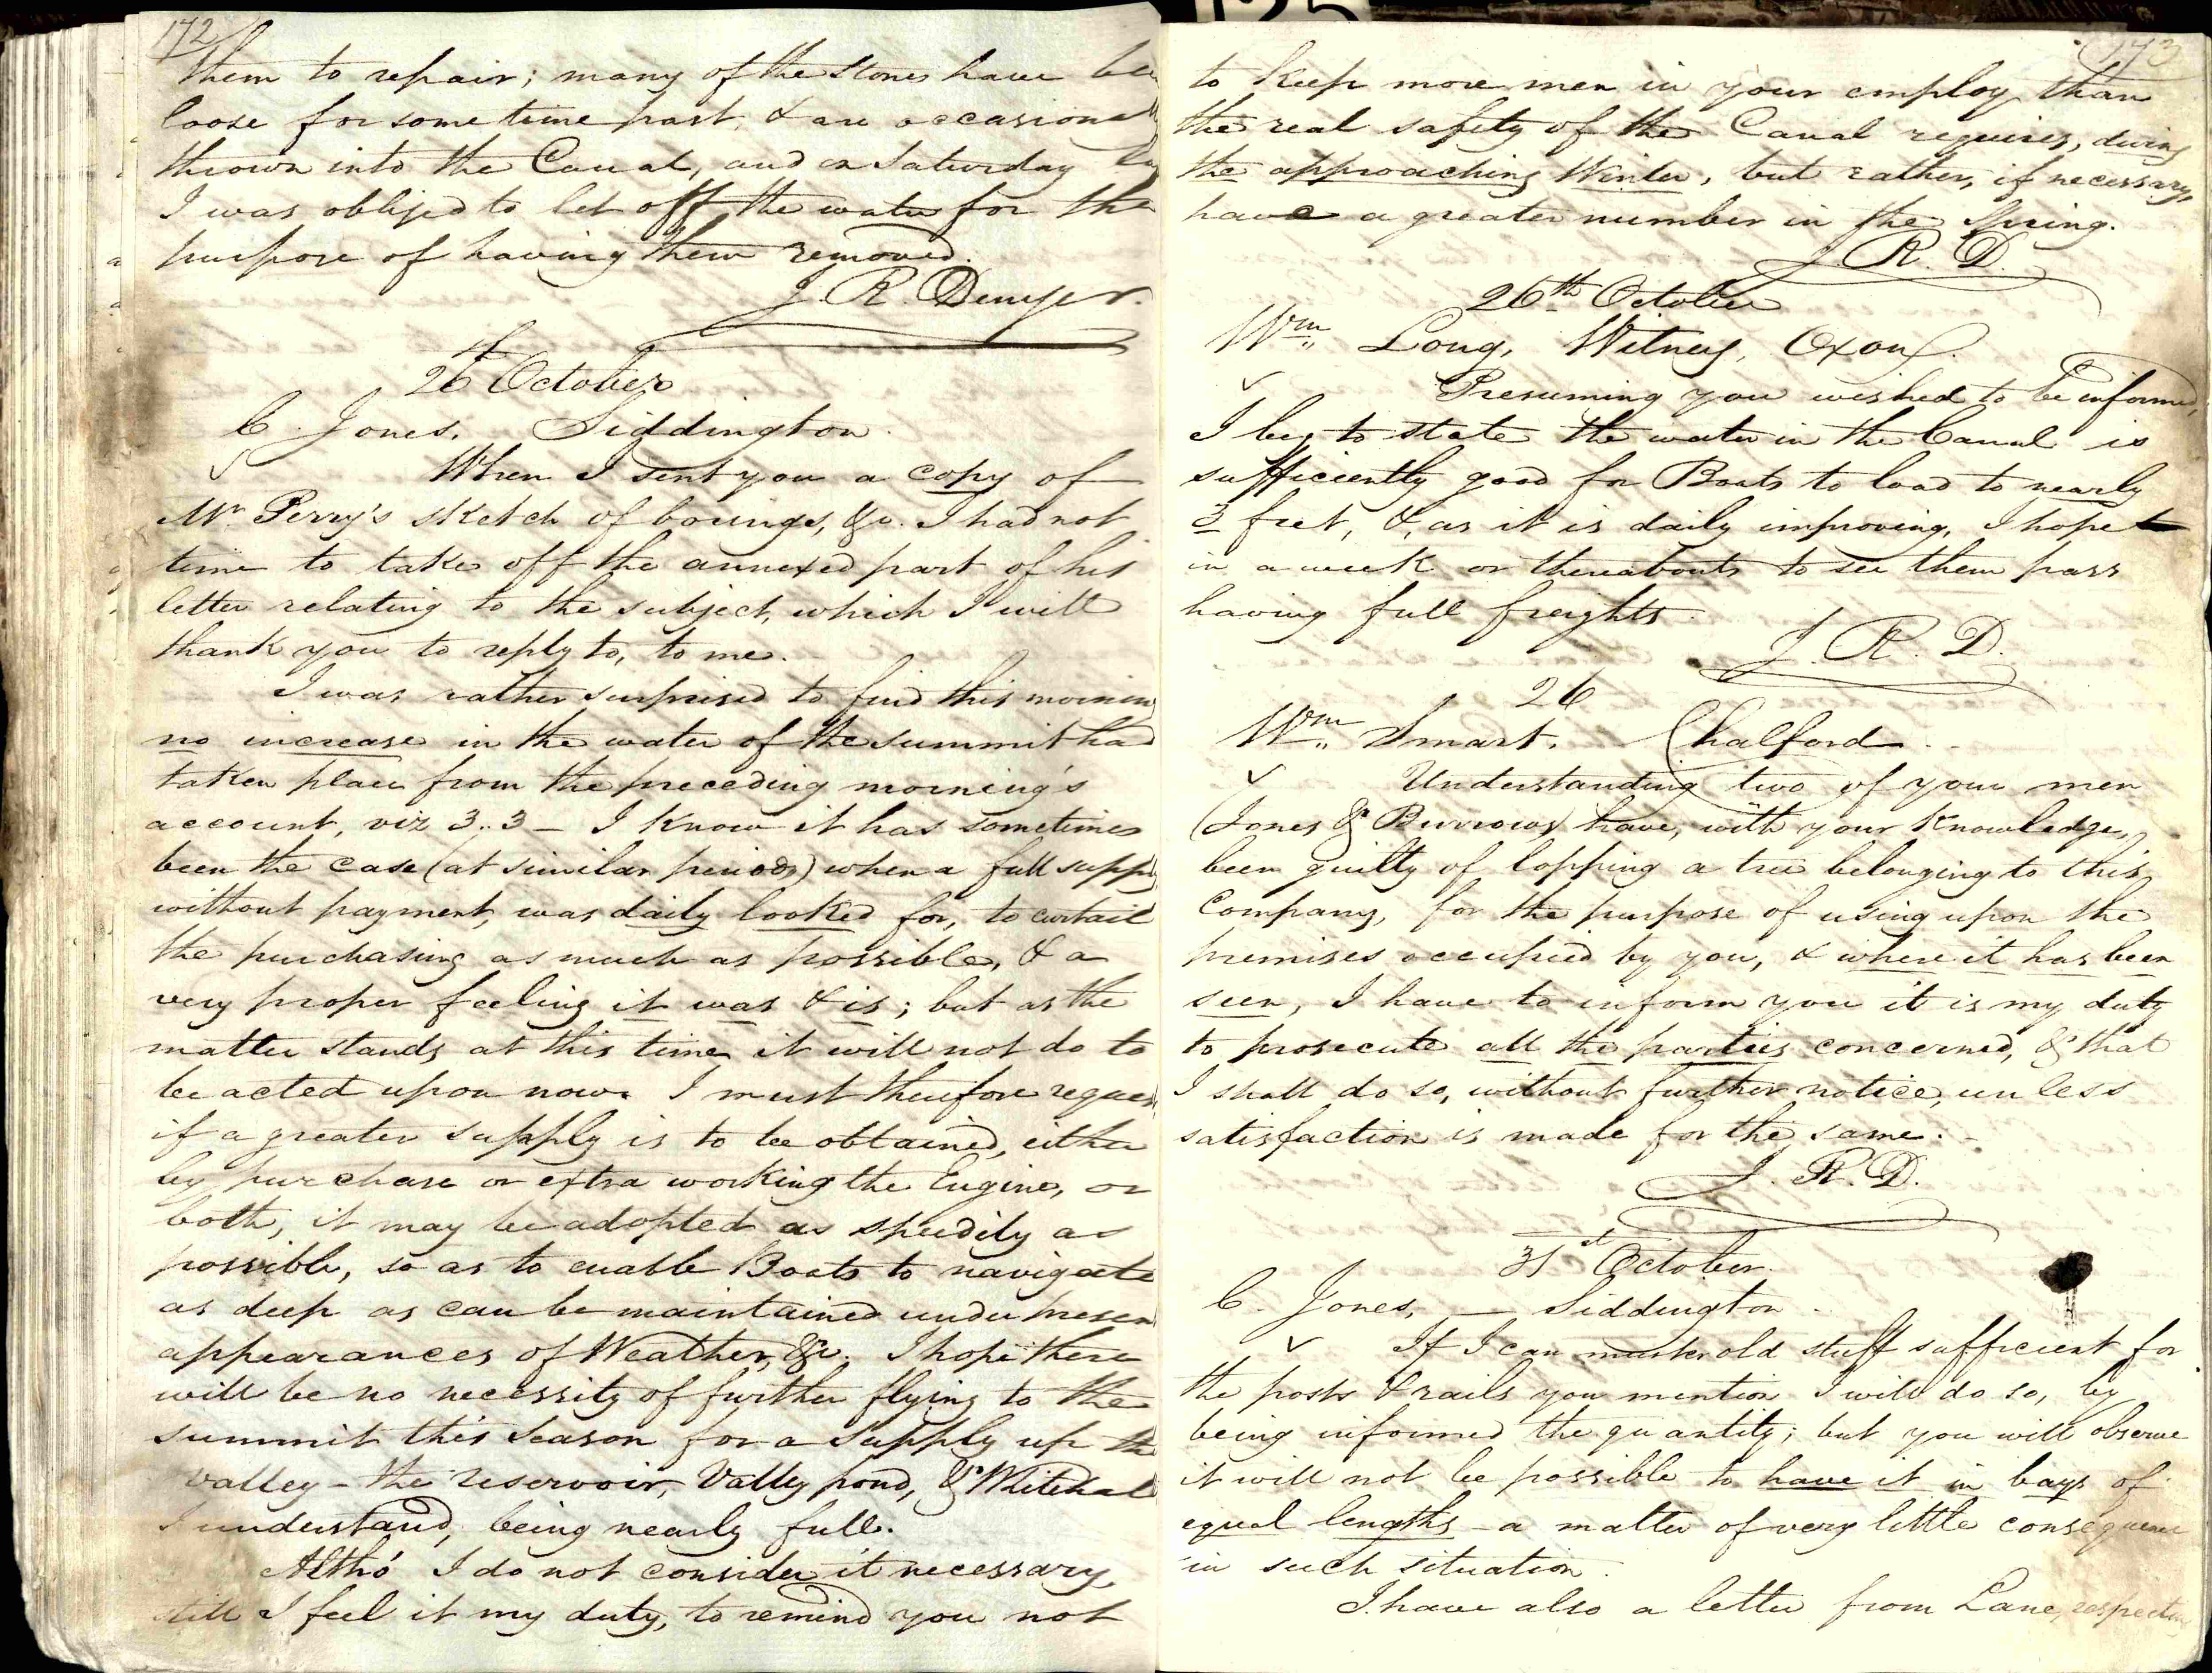 172
them to repair; many of the stones have
loose for some time past, & are occasional
thrown into the Canal, and on Saturday
I was obliged to let off the water for the
purpose of having them removed.
J. R. Denyer.
26th October
C. Jones. Siddington.
When I sent you a copy of
Mr. Perry's sketch of borings, &c. I had not
time to take off the annexed part of his
letter relating to the subject, which I will
thank you to reply to, to me.
I was rather surprised to find this mornin
no increase in the water of the summit had
taken place from the preceding morning's
account, viz 3..3 - I know it has sometimes
been the case (at similar periods) when a full supp
without payment, was daily looked for, to curtail
the purchasing as much as possible, & a
very proper feeling it was & is; but as the
matter stands at this time it will not do to
be acted upon now. I must therefore reques
if a greater supply is to be obtained, either
by purchase or extra working the Engine, or
both, it may be adopted as speedily as
possible, so as to enable Boats to navigate
as deep as can be maintained under presen
appearances of Weather, &c. I hope there
will be no necessity of further flying to the
summit this season for a supply up the
valley - the reservoir, Valley pond, & Whitehal
I understand, being nearly full.
Altho' I do not consider it necessary,
still I feel it my duty, to remind you not
173
to keep more men in your employ than
the real safety of the Canal requires, during
the approaching Winter, but rather, if necessary,
have a greater number in the Spring.
J. R. D.
26th October
Wm. Long, Witney, Oxon.
Presuming you wished to be informed,
I beg to state the water in the Canal is
sufficiently good for Boats to load to nearly
3 feet, &, as it is daily improving, I hope
in a week or thereabouts to see them pass
having full freights.
J. R. D.
26
Wm. Smart. Chalford.
Understanding two of your men
(Jones & Burrows) have, with your knowledge,
been guilty of lopping a tree belonging to this
Company, for the purpose of using upon the
premises occupied by you, & where it has been
seen, I have to inform you it is my duty
to prosecute all the parties concerned, & that
I shall do so, without further notice, unless
satisfaction is made for the same. -
J. R. D.
31st October.
C. Jones, - Siddington.
If I can muster old stuff sufficient for
the posts & rails you mention I will do so, by
being informed the quantity; but you will observe
it will not be possible to have it in bays of
equal lengths - a matter of very little consequence
in such situation.
I have also a letter from Lane, respecting